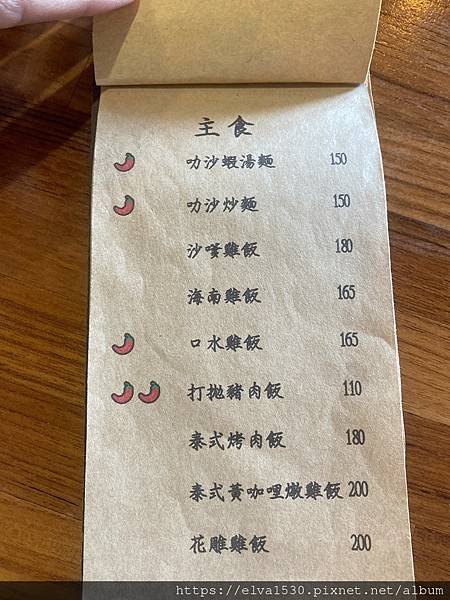 主食
叻沙蝦湯麵 150
叻沙炒麵 150
沙嗲雞飯 180
海南雞飯 165
口水雞飯 165
打拋豬肉飯 110
泰式烤肉飯 180
泰式黃咖哩燉雞飯 200
花雕雞飯 200
https://elva1530.pixnet.net/album